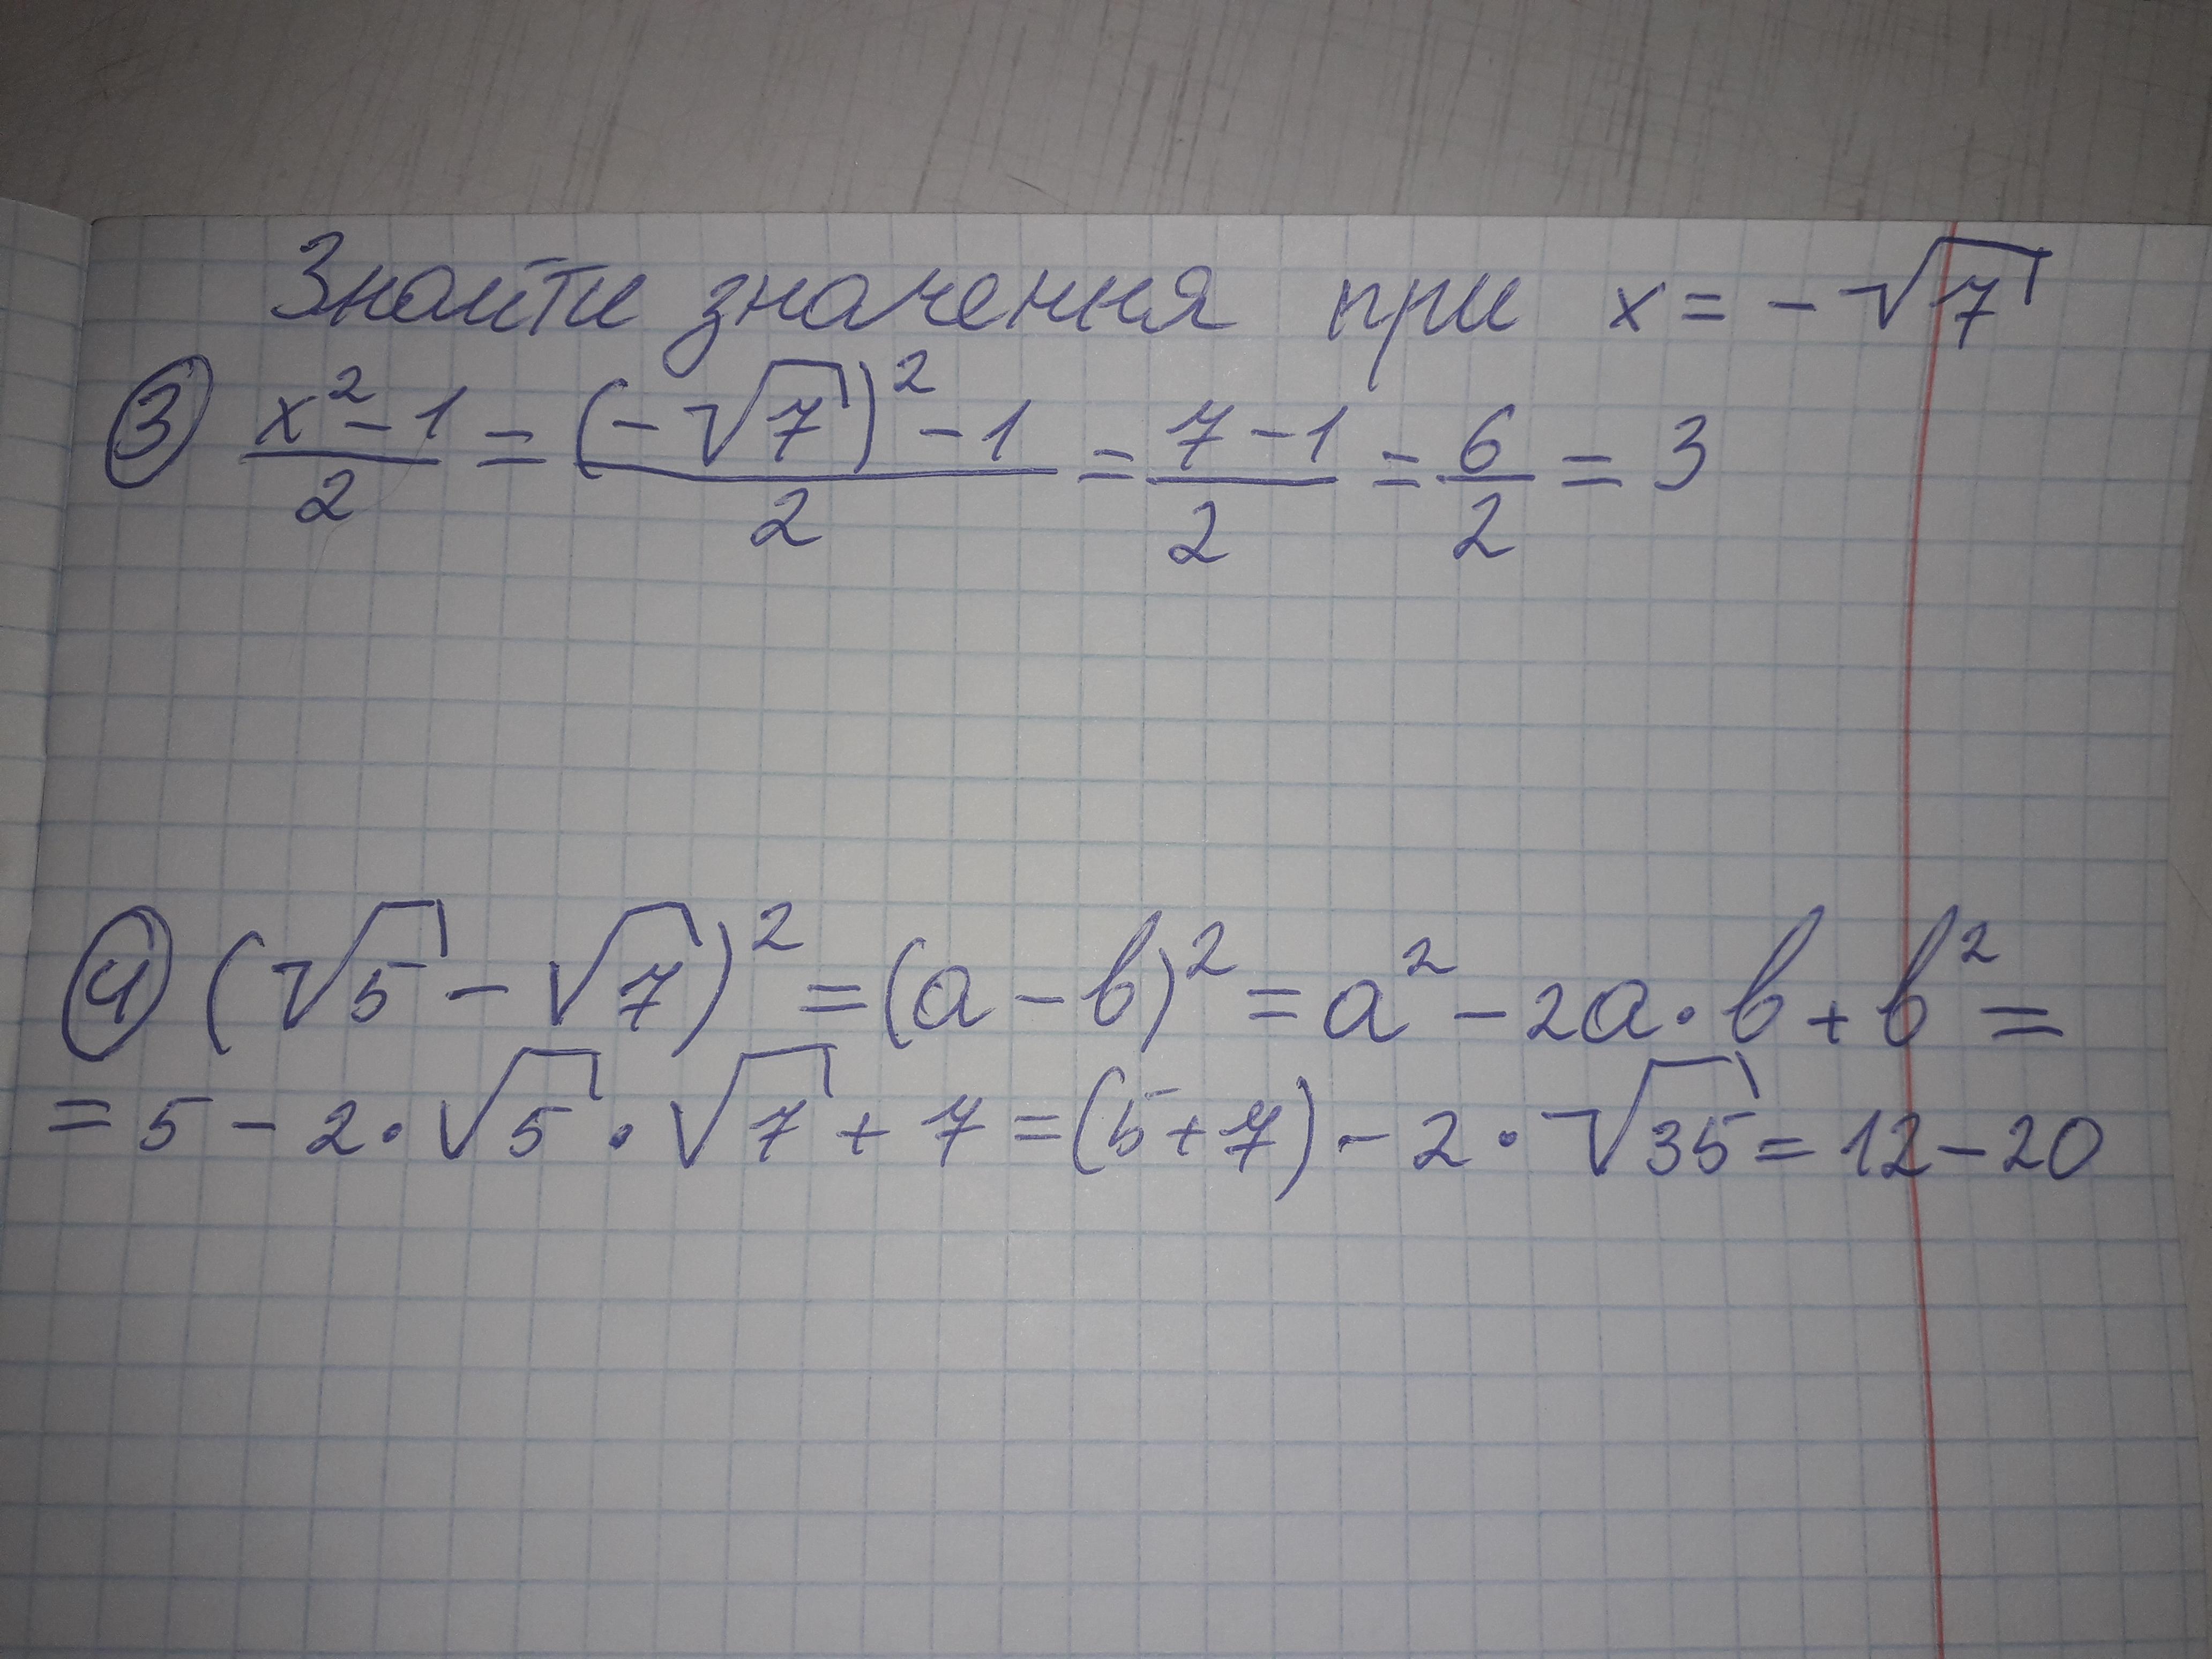 Знайти значення при x = -√7
③ (x² - 1)/2 = ((-√7)² - 1)/2 = (7 - 1)/2 = 6/2 = 3
④ (√5 - √7)² = (a - b)² = a² - 2a · b + b² =
= 5 - 2 · √5 · √7 + 7 = (5 + 7) - 2 · √35 = 12 - 20